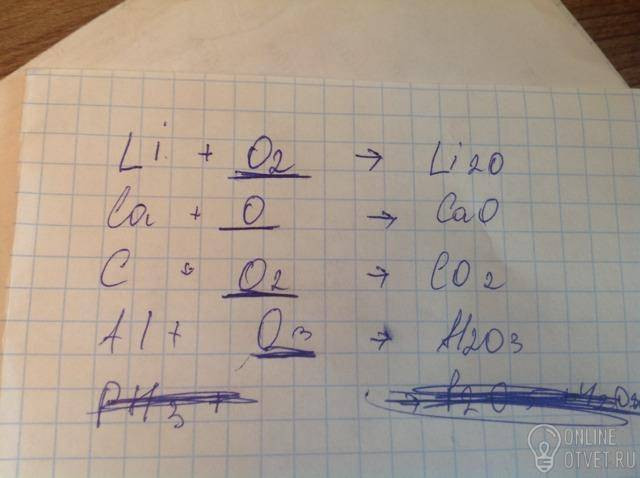 Li + O2 → Li2O
Ca + O → CaO
C + O2 → CO2
Al + O3 → Al2O3
PH3 + →
ONLINE
OTVET.RU